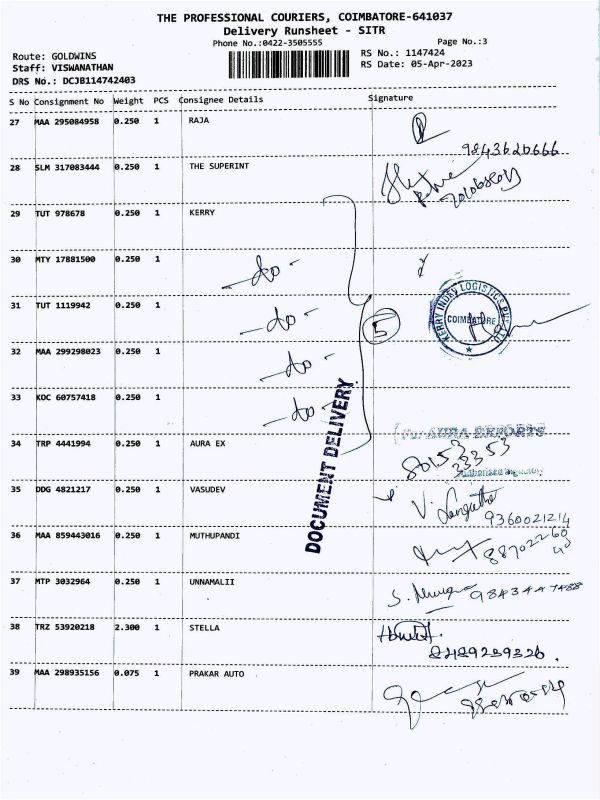 THE PROFESSIONAL COURIERS, COIMBATORE-641037
Delivery Runsheet - SITR
Phone No.:0422-3505555 Page No.:3
Route: GOLDWINS RS No.: 1147424
Staff: VISWANATHAN RS Date: 05-Apr-2023
DRS No.: DCJB114742403
S No Consignment No Weight PCS Consignee Details Signature
27 MAA 295084958 0.250 1 RAJA
9843620666
28 SLM 317083444 0.250 1 THE SUPERINT
29 TUT 978678 0.250 1 KERRY
30 MTY 17881500 0.250 1 -do-
31 TUT 1119942 0.250 1 -do- 5 KERRY INDEV LOGISTICS COIMBATORE
32 MAA 299298023 0.250 1 -do-
33 KOC 60757418 0.250 1 -do-
DOCUMENT DELIVERY
34 TRP 4441994 0.250 1 AURA EX For AURA EXPORTS
80153
33353
Authorised Signatory
35 DDG 4821217 0.250 1 VASUDEV
9360021214
36 MAA 859443016 0.250 1 MUTHUPANDI
37 MTP 3032964 0.250 1 UNNAMALII
9843447488
38 TRZ 53920218 2.300 1 STELLA
8489239326.
39 MAA 298935156 0.075 1 PRAKAR AUTO